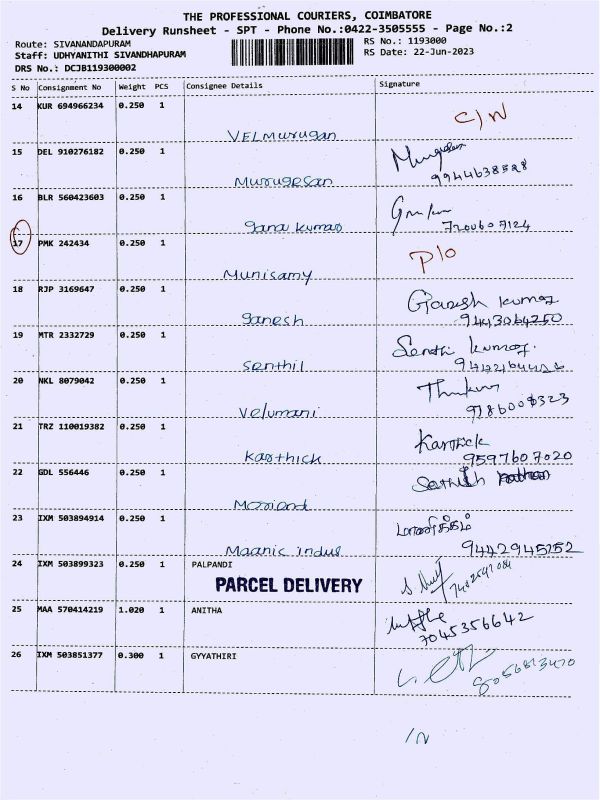 THE PROFESSIONAL COURIERS, COIMBATORE
Delivery Runsheet - SPT - Phone No.:0422-3505555 - Page No.:2
Route: SIVANANDAPURAM RS No.: 1193000
Staff: UDHYANITHI SIVANDHAPURAM RS Date: 22-Jun-2023
DRS No.: DCJB119300002
S No Consignment No Weight PCS Consignee Details Signature
14 KUR 694966234 0.250 1
VELMURUGAN C/N
15 DEL 910276182 0.250 1
Murugesan 9944638528
16 BLR 560423603 0.250 1
gana kumar 7200607124
17 PMK 242434 0.250 1 P/O
Munisamy
18 RJP 3169647 0.250 1 Ganesh kumar
ganesh 9443064250
19 MTR 2332729 0.250 1 Senthil kumar
senthil
20 NKL 8079042 0.250 1
velumani
21 TRZ 110019382 0.250 1 Karthick
karthick 9597607020
22 GDL 556446 0.250 1 Sathish
23 IXM 503894914 0.250 1
Maanic indus 9442945252
24 IXM 503899323 0.250 1 PALPANDI
PARCEL DELIVERY
25 MAA 570414219 1.020 1 ANITHA
7045356642
26 IXM 503851377 0.300 1 GYYATHIRI